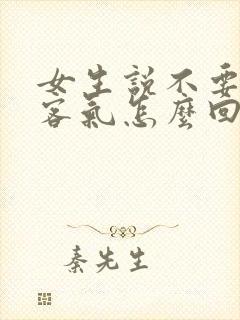 女生説不要
客氣怎麼回
秦先生